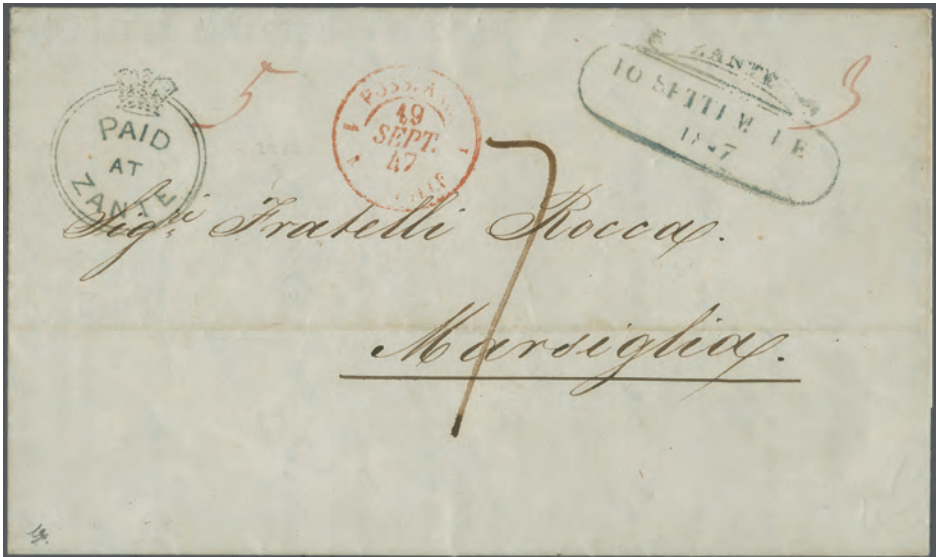 PAID
AT
ZANTE
5
19
SEPT.
47
ZANTE
10
3
7
Sig.ri Fratelli Rocca.
Marsiglia.